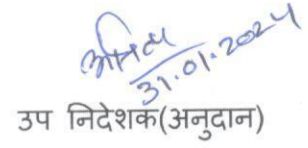 अमित
31.01.2024
उप निदेशक(अनुदान)